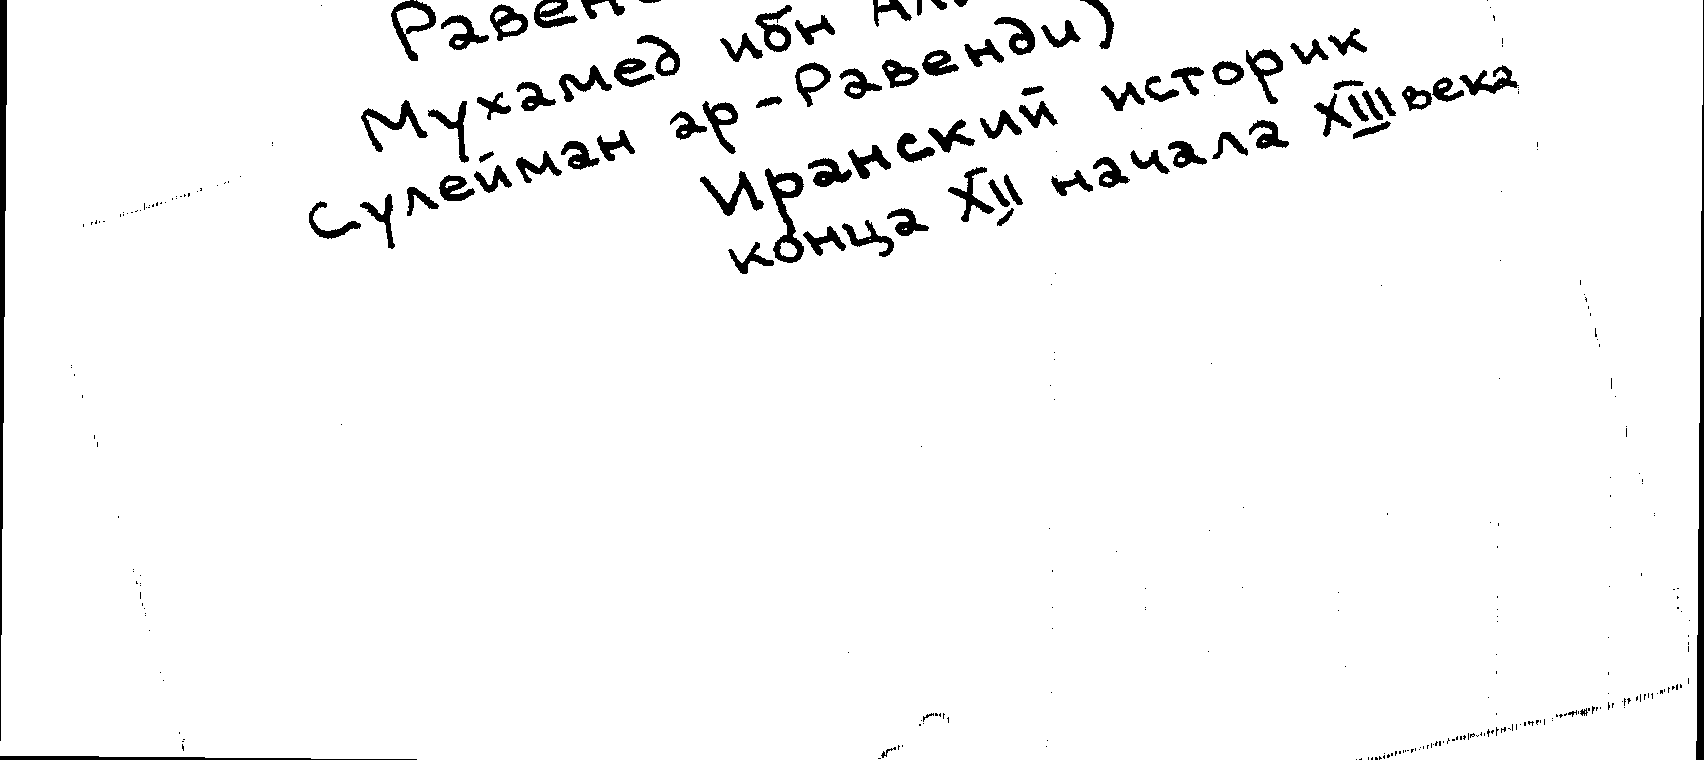 Мухамед ибн
Сулейман ар-Равенди)
Иранский историк
конца XII начала XIII века